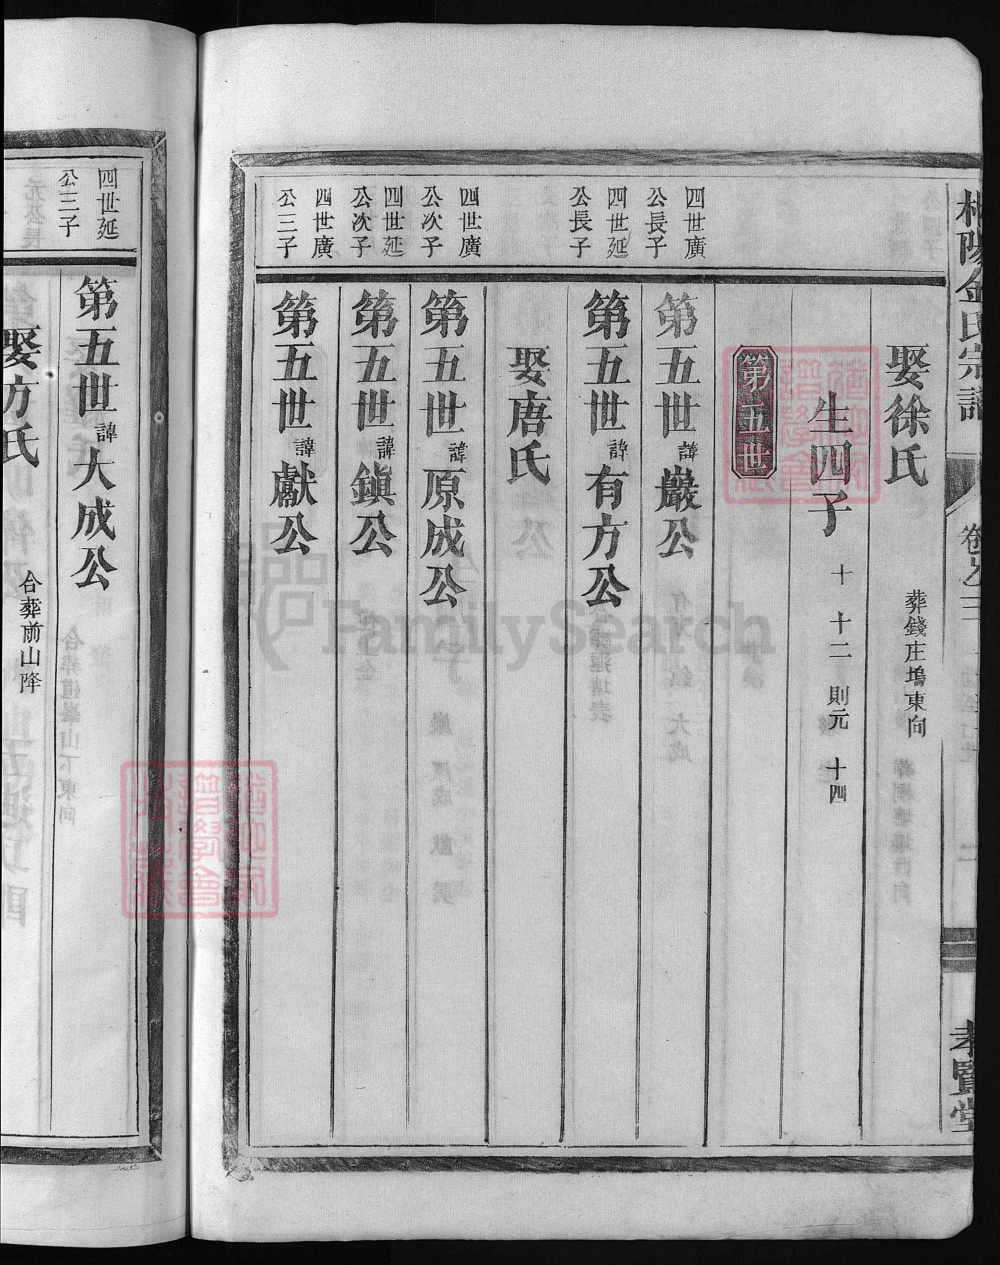 金氏宗譜
卷之三
孝賢堂
娶徐氏
葬錢庄塢東向
生四子 十 十二 則元 十四
第五世
四世廣公長子
第五世諱巖公
四世延公長子
第五世諱有方公
娶唐氏
四世廣公次子
第五世諱原成公
四世延公次子
第五世諱鎮公
四世廣公三子
第五世諱獻公
四世延公三子
第五世諱大成公
娶方氏
合葬前山降
FamilySearch